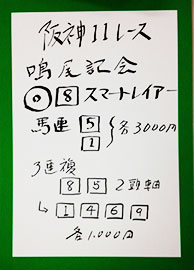 阪神11レース
鳴尾記念
◎ 8 スマートレイアー
馬連 5
1 } 各3000円
3連複
8 5 2頭軸
↳ 1 4 6 9
各1,000円